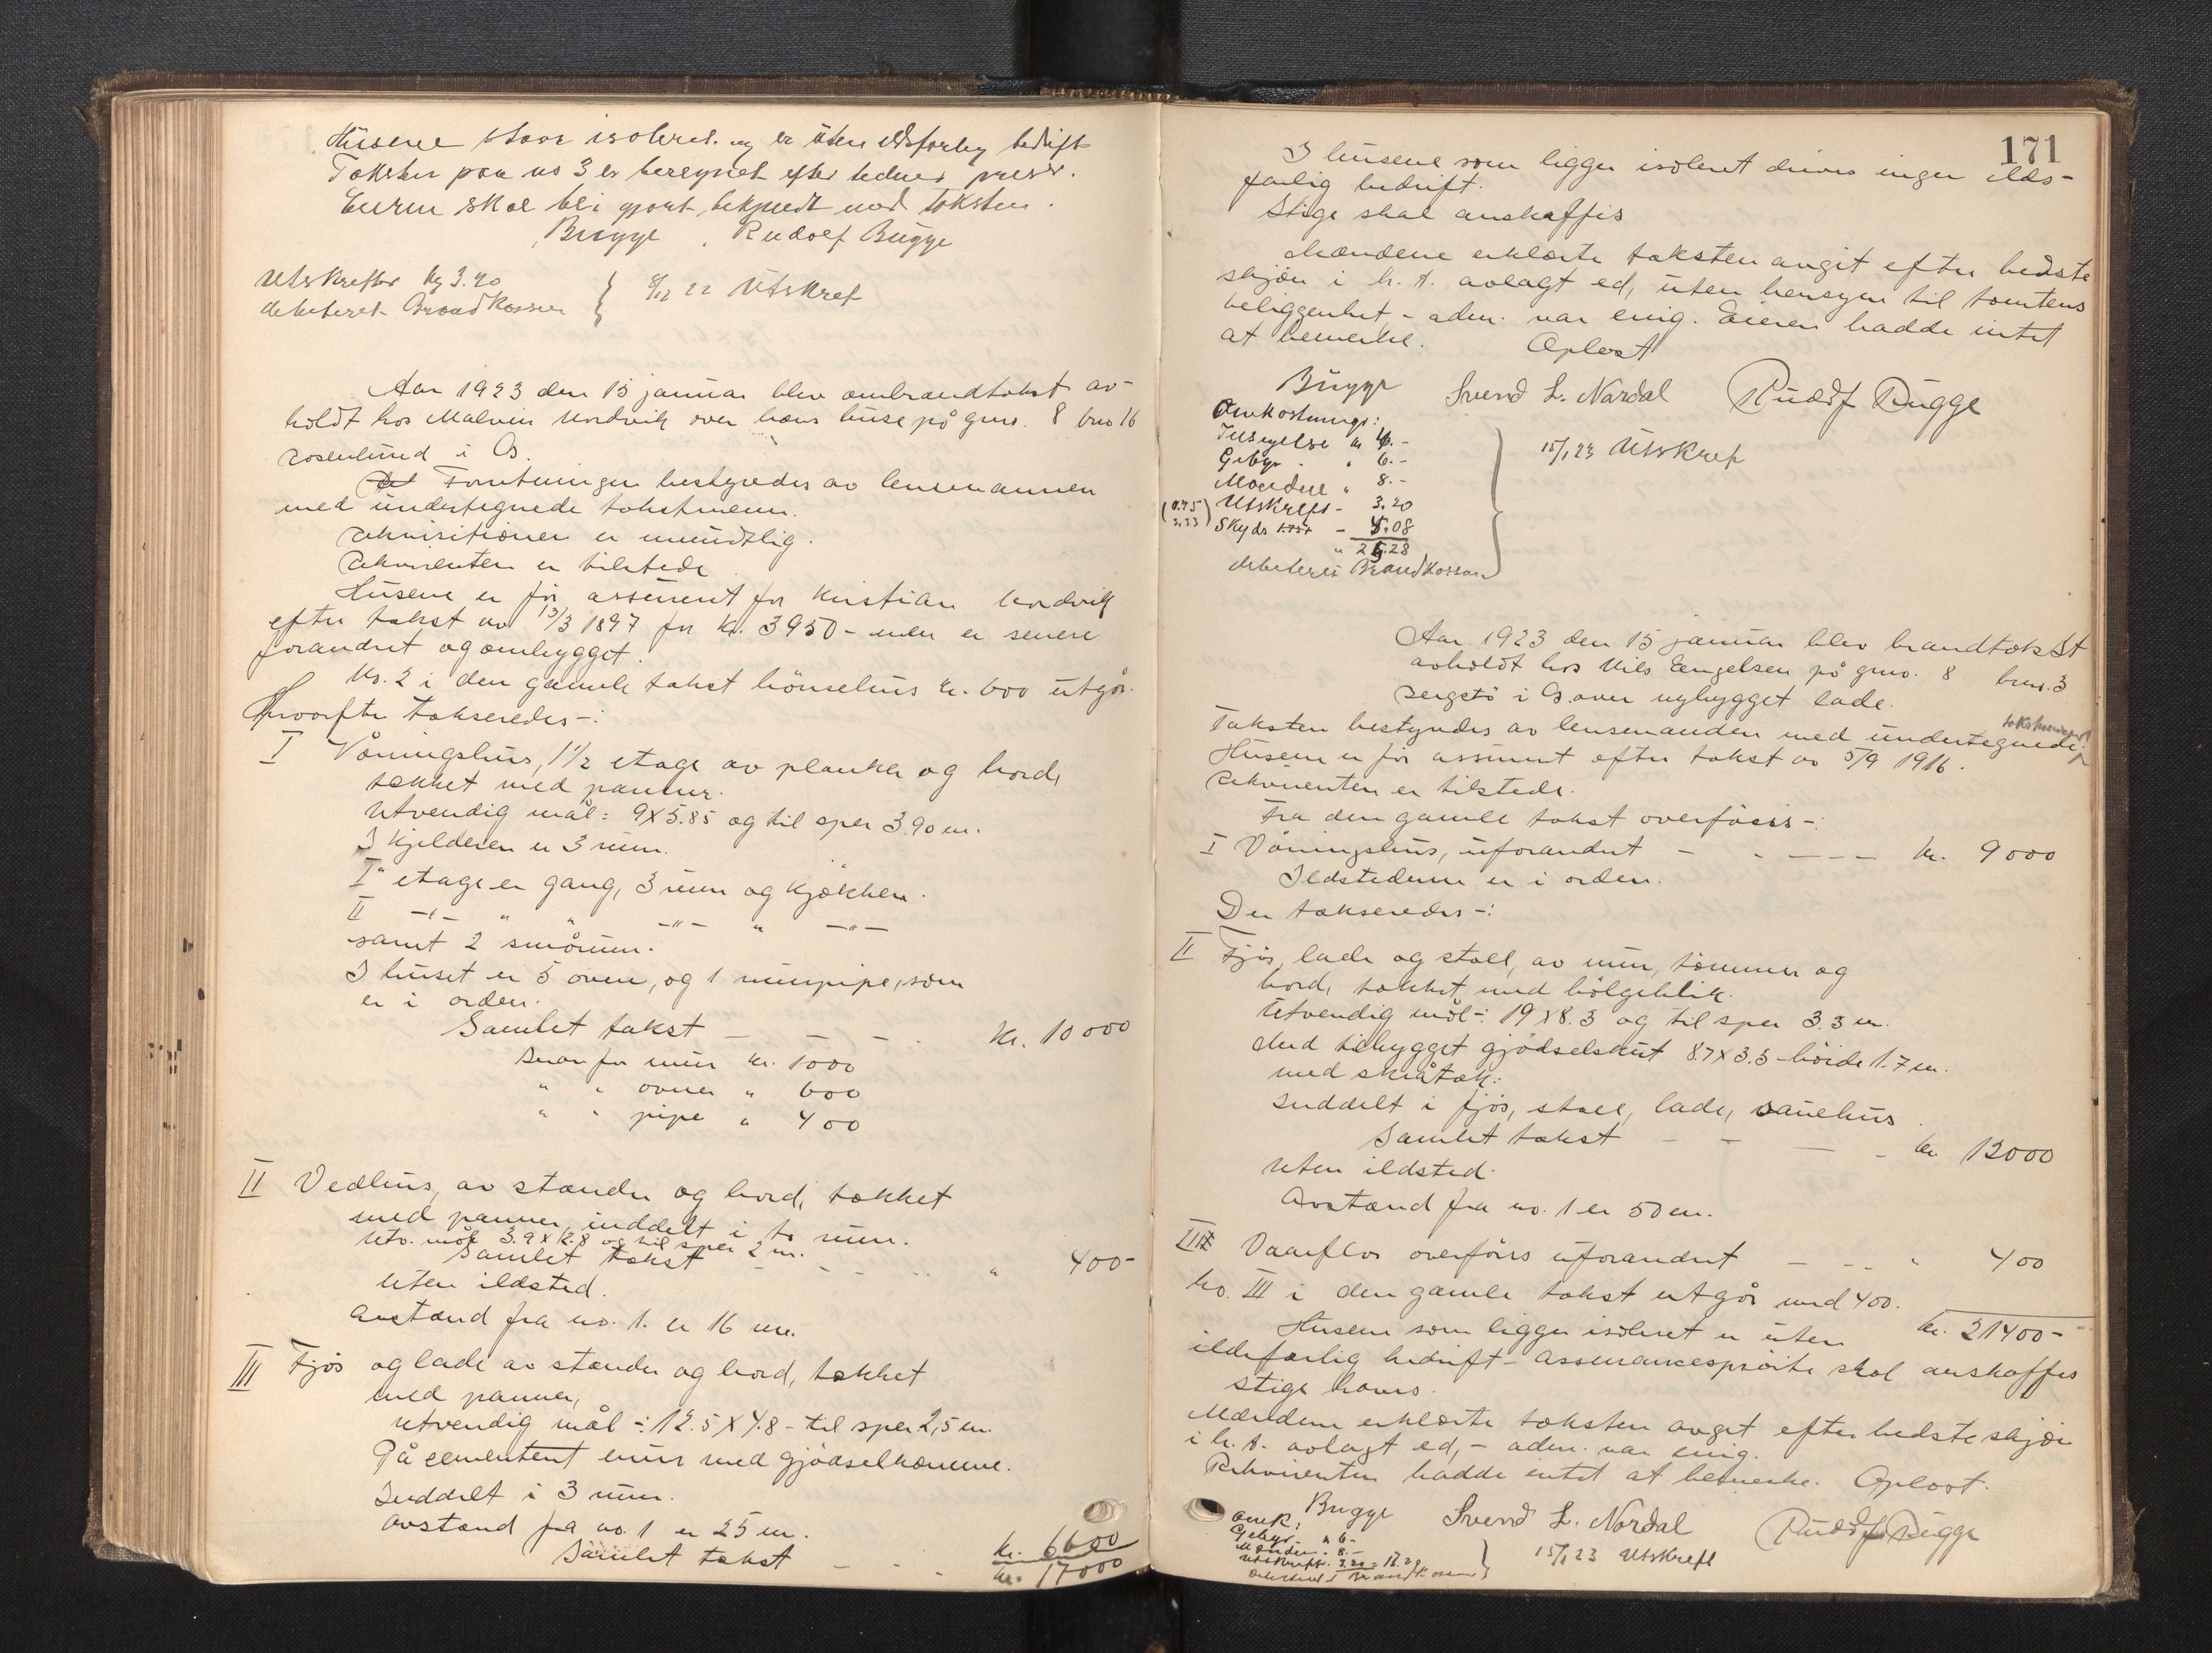 Husene staar isoleret og er uten ildsfarlig bedrift
Taksten paa no 3 er beregnet efter priser.
Eieren skal bli gjort bekjendt med taksten.
Bugge Rudolf Bugge
Utskrefter kr 3.20
debiteret Brandkassen
8/12 22 Utskref
Aar 1923 den 15 januar blev ombrandtakst av-
holdt hos Malvin Nordvik over hans huse på gno. 8 bno 16
Rosenlund i Os.
Forretningen bestyredes av lensmannen
med undertegnede takstmenn.
Rekvisitionen er mundtlig.
Rekvirenten er tilstede
Husene er før assurert for Kristian Nordvik
efter takst av 13/3 1897 for kr. 3950 - men er senere
forandret og ombygget.
No. 2 i den gamle takst hönsehus kr. 600 utgår.
Hvorefter takseredes -:
I Våningshus, 1 1/2 etage av planker og bord,
tækket med panner.
Utvendig mål: 9 x 5.85 og til sper 3.90 m.
I kjelderen er 3 rum.
I" etage er gang, 3 rum og kjøkken.
II -"- " " -"- " -"-
samt 2 smårum.
I huset er 5 ovne, og 1 murpipe, som
er i orden.
Samlet takst - - - kr. 10 000
Herav for mur kr. 1000
" " ovner " 600
" " pipe " 400
II Vedhus, av stænder og bord, tækket
med panner, inddelt i to rum.
Utv. mål 3.9 x 2.8 og til sper 2 m.
Samlet takst - - - " 400-
Uten ildsted.
Avstand fra no. 1. er 16 m.
III Fjös og lade av stænder og bord, tækket
med panner,
Utvendig mål -: 12.5 x 4.8 - til sper 2,5 m.
På cementert mur med gjödselkumme.
Inddelt i 3 rum.
Avstand fra no. 1 er 25 m.
Samlet takst - - kr. 6600
kr. 17000
171
I husene som ligger isoleret drives ingen ilds-
farlig bedrift.
Stige skal anskaffes
Mændene erklærte taksten avgit efter bedste
skjön i h. t. avlagt ed, uten hensyn til tomtens
beliggenhet - adm. var enig. Eieren hadde intet
at bemerke. Oplæst
Bugge Svend L. Nordal Rudolf Bugge
Omkostninger:
Tilsigelse kr 4.-
Gebyr " 6.-
Mændene " 8.-
Utskrift - 3.20
(0.75 3.33) Skyds - 4.08
" 25.28
debiteres Brandkassen
15/1 23 Utskref
Aar 1923 den 15 januar blev brandtakst
avholdt hos Nils Engelsen på gno. 8 bno. 3
i Os over nybygget lade.
Taksten bestyredes av lensmanden med undertegnede takstmænd
Husene er för assurert efter takst av 5/9 1916.
Rekvirenten er tilstede.
Fra den gamle takst overföres -:
I Våningshus, uforandret - - - - kr. 9000
Ildstederne er i orden.
Der takseredes -:
II Fjös, lade og stall, av mur, tømmer og
bord, tækket med bölgeblik.
Utvendig mål -: 19 x 8.3 og til sper 3.3 m.
Med tilbygget gjödselskut 8.7 x 3.3 - höide 1.7 m.
med skråtak.
Inddelt i fjös, stall, lade, sauehus
Samlet takst - - - kr. 12000
Uten ildsted.
Avstand fra no. 1 er 50 m.
III Vaarflor overföres uforandret - - - " 400
No. III i den gamle takst utgår med 400.
kr. 21400-
Husene som ligger isoleret er uten
ildsfarlig bedrift - Assurancespröite skal anskaffes
stige haves.
Mændene erklærte taksten avgit efter bedste skjön
i h. t. avlagt ed, - adm. var enig.
Rekvirenten hadde intet at bemerke. Oplæst.
Bugge Svend L. Nordal Rudolf Bugge
Omk:
Gebyr " 6-
Mændene " 8.-
Utskrift. 3.20 = 17.20
debiteret Brandkassen
15/1 23 Utskreft